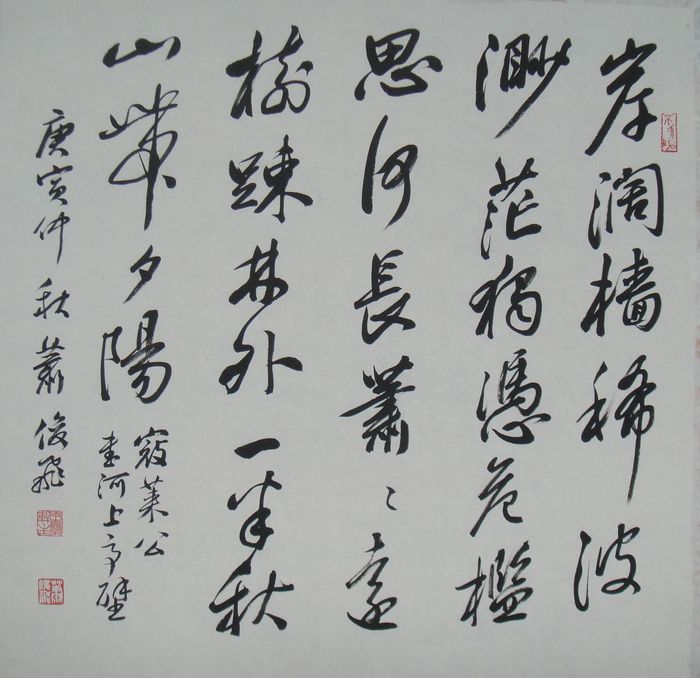 岸濶檣稀波
渺茫獨憑危檻
思何長蕭〻遠
樹踈林外一半秋
山帶夕陽
寇萊公
書河上亭壁
庚寅仲秋蕭俊飛